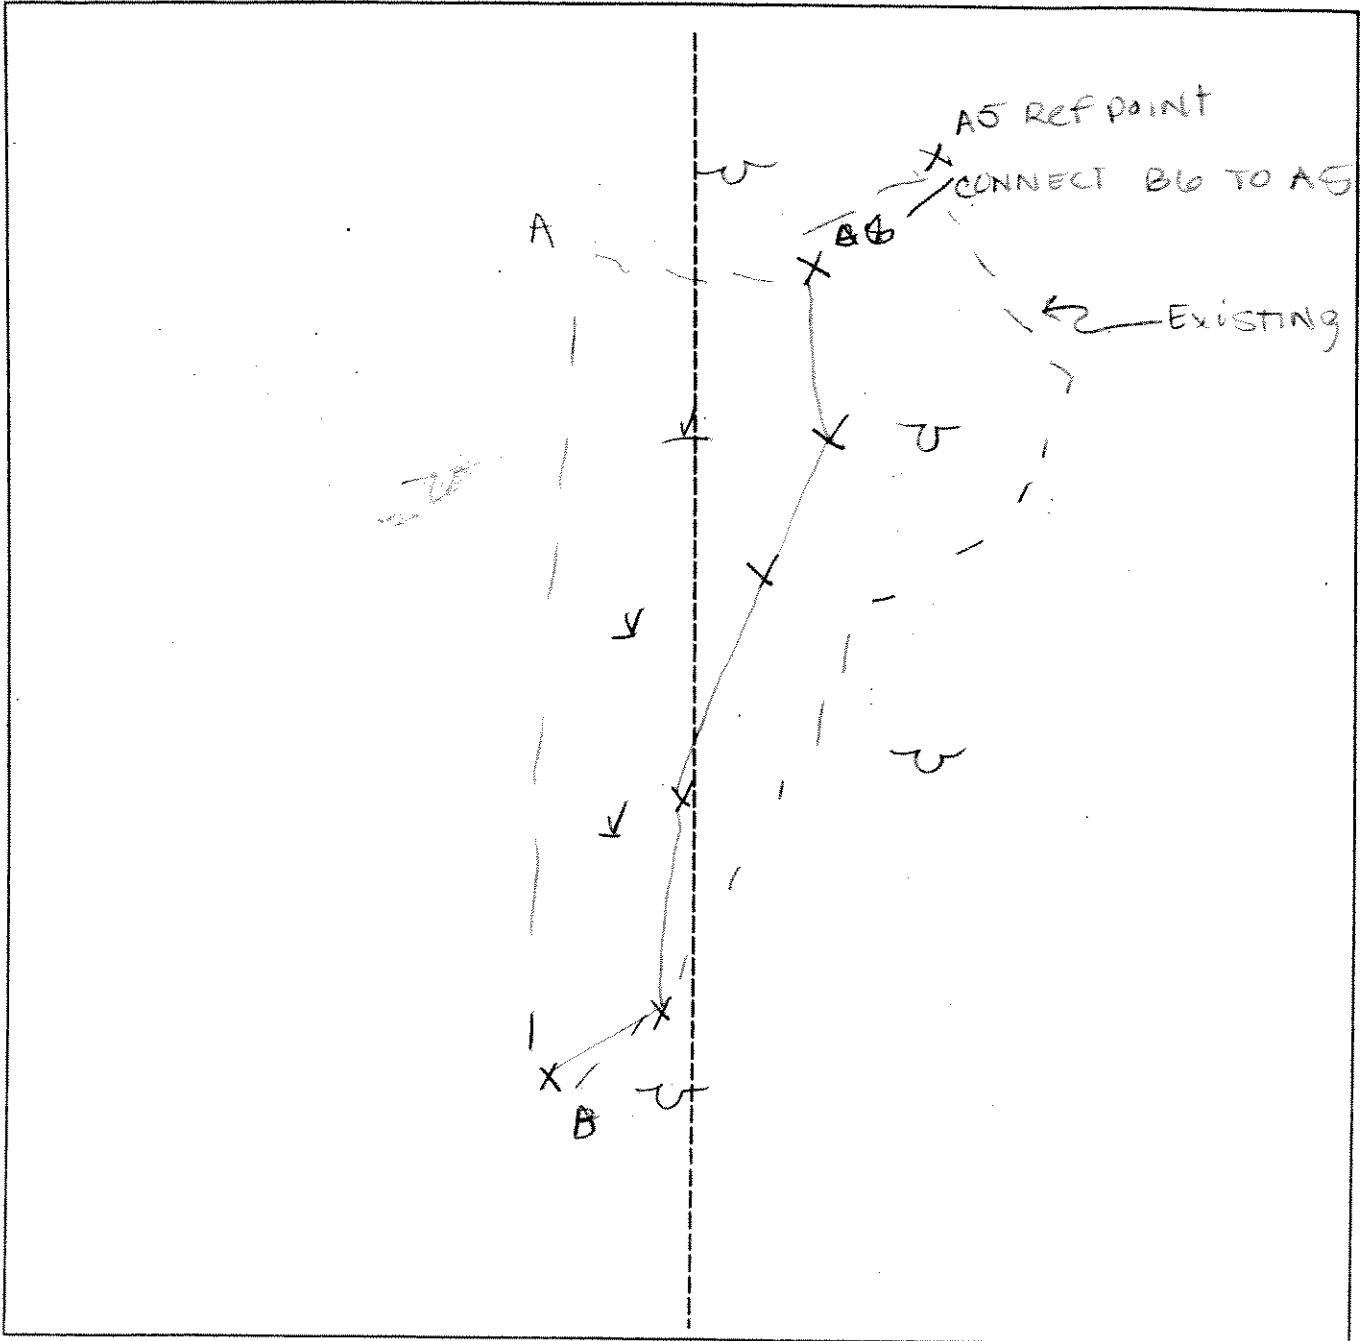 A5 Ref point
CONNECT B6 TO A5
A
Existing
B